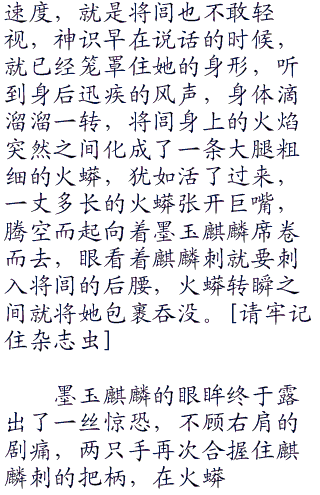 速度，就是将闾也不敢轻
视，神识早在说话的时候，
就已经笼罩住她的身形，听
到身后迅疾的风声，身体滴
溜溜一转，将闾身上的火焰
突然之间化成了一条大腿粗
细的火蟒，犹如活了过来，
一丈多长的火蟒张开巨嘴，
腾空而起向着墨玉麒麟席卷
而去，眼看着麒麟刺就要刺
入将闾的后腰，火蟒转瞬之
间就将她包裹吞没。[请牢记
住杂志虫]
墨玉麒麟的眼眸终于露
出了一丝惊恐，不顾右肩的
剧痛，两只手再次合握住麒
麟刺的把柄，在火蟒